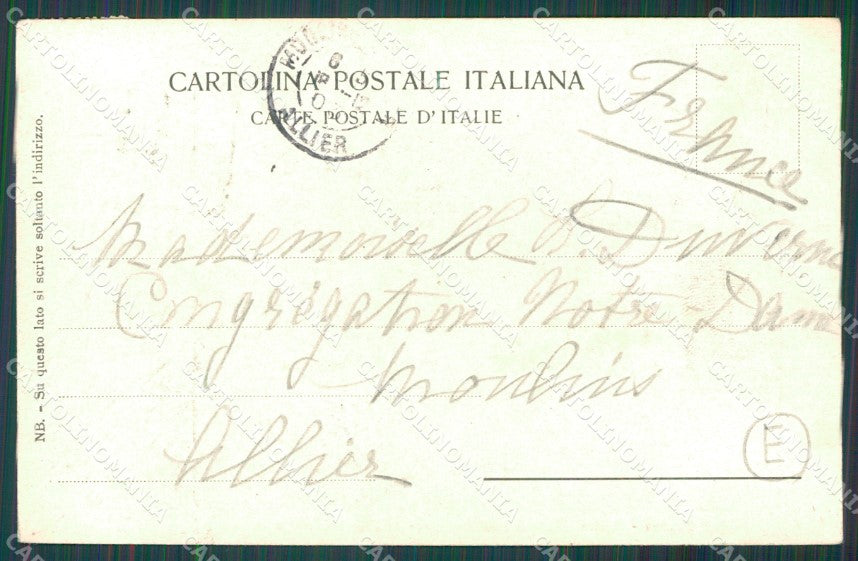 CARTOLINA POSTALE ITALIANA
CARTE POSTALE D'ITALIE
ALLIER
France
Mademoiselle B. Duverne
Congrégation Notre-Dame
Moulins
Allier
E
NB. - Su questo lato si scrive soltanto l'indirizzo.
CARTOLINOMANIA